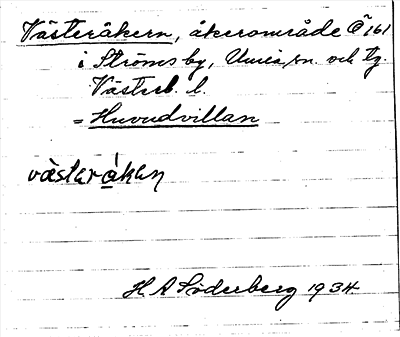 Västeråkern, åkerområde Ä 161
i Ströms by, Umeå sn. och tg.
Västerb. l.
= Huvudvillan
västeråkan
H A Söderberg 1934.